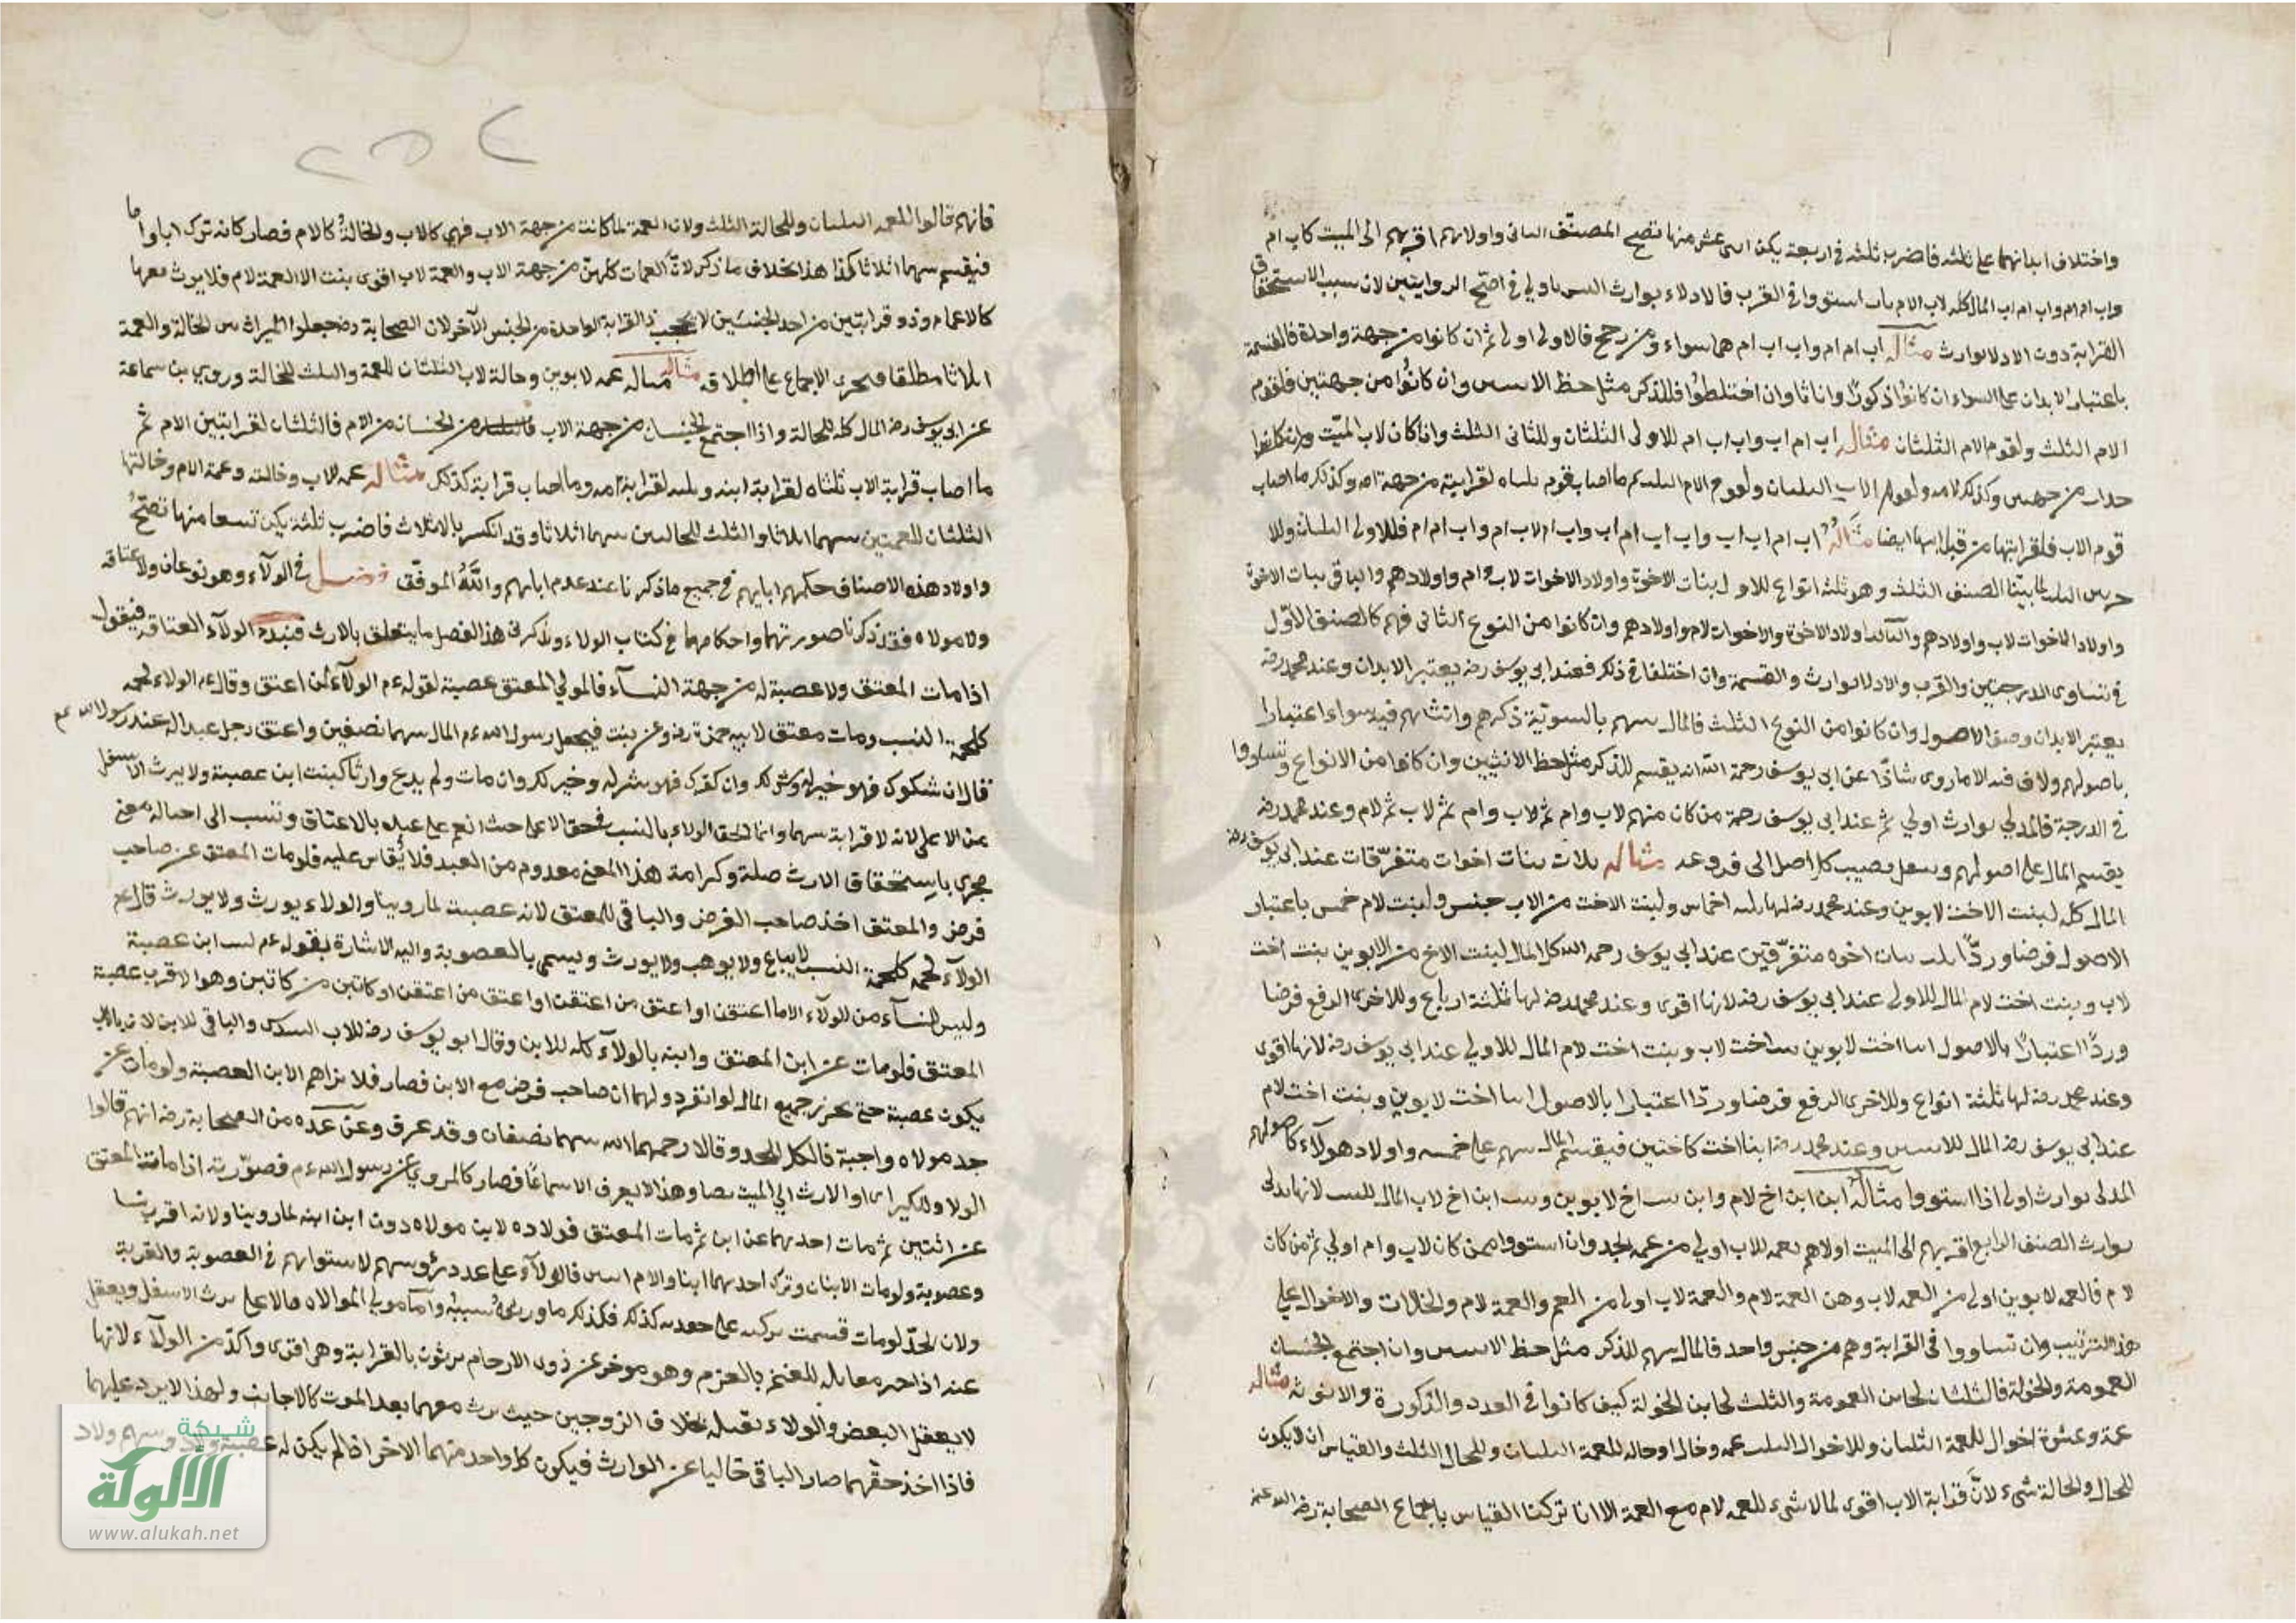 واختلاف ابدانهما على ثلثه فاضرب ثلثه في اربعة يكن اثنى عشر منها تصح المصنف الثانى واولاهم اقربهم الى الميت كاب ام
واب ام ام واب ام اب المال كله لاب الام استووا في القرب فالادلاء بوارث ليس باولي في اصح الروايتين لان سبب الاستحقاق
القرابة دون الادلا بوارث مثاله اب ام ام واب اب ام هما سواء ومن رجح فالاولى اولى ثم ان كانوا من جهة واحدة فالقسمة
باعتبار الابدان على السواء ان كانوا ذكورًا واناثا وان اختلطوا فللذكر مثل حظ الانثيين وان كانوا من جهتين فلقوم
الام الثلث ولقوم الام الثلثان مثاله اب ام اب واب اب ام للاولى الثلثان وللثانى الثلث وان كان لاب الميت
من جهتين وكذلك لامه ولقوم الاب الثلثان ولقوم الام الثلث ثم ما اصاب قوم ثلثاه لقرابته من جهة امه وكذلك ما اصاب
قوم الاب فلقرابتها من قبل ابيها ايضا مثاله اب ام اب اب واب اب اب ام اب واب ام لاب ام واب ام ام ام فللاولى الثلثان وللا
الثلث لما بيتا الصنف الثلث وهو ثلثه انواع للاول بنات الاخوة واولاد الاخوات لاب وام واولادهم والباقى بنات الاخوة
واولاد الاخوات لاب واولادهم والثالث اولاد الاخوة والاخوات لام واولادهم وان كانوا من النوع الثانى فهم كالصنف الاول
في تساوى الدرجتين والقرب والادلا بوارث والقسمة وان اختلفا في ذلك فعند ابى يوسف رضه يعتبر الابدان وعند محمد رضه
يعتبر الابدان وصف الاصول وان كانوا من النوع الثلث فالمال بينهم بالسوية ذكرهم وانثاهم فيه سواء اعتبارا
باصولهم ولاف فيه الا ماروى شاذًا عن ابى يوسف رحمة الله انه يقسم للذكر مثل حظ الانثيين وان كانوا من الانواع وتساووا
في الدرجة فالمدلي بوارث اولي ثم عند ابى يوسف رحمة من كان منهم لاب وام ثم لاب وام ثم لاب ثم لام وعند محمد رضه
يقسم المال على اصولهم وينقل نصيب كل اصل الى فروعه مثاله ثلاث بنات اخوات متفرقات عند ابى يوسف رضه
المال كله لبنت الاخت لابوين وعند محمد رضه لها ثلثه اخماس ولبنت الاخت من الاب خمس ولبنت لام خمس باعتبار
الاصول فرضا وردًّا ثلث بنات اخوه متفرقين عند ابى يوسف رحمه الله كل المال لبنت الاخ من الابوين بنت اخت
لاب وبنت اخت لام المال للاولى عند ابى يوسف رضه لانها اقوى وعند محمد رضه لها ثلثة ارباع وللاخرى الربع فرضا
وردًّا اعتبارًا بالاصول ابنا اخت لابوين بنت اخت لاب وبنت اخت لام المال للاولي عند ابى يوسف رضه لانها اقوى
وعند محمد رضه لها ثلثة انواع وللاخرى الربع فرضا وردّا اعتبارا بالاصول ابنا اخت لابوين وبنت اخت لام
عند ابى يوسف رضه المال للابنين وعند محمد رضه ابنا اخت كاختين فيقسم المال بينهم على خمسه واولاد هولآء كاصولهم
المدلى بوارث اولى اذا استووا مثاله ابن ابن اخ لام وابن بنت اخ لابوين وبنت ابن اخ لاب المال للبنت لانها تدلى
بوارث الصنف الرابع اقربهم الى الميت اولاهم عمه للاب اولي من عمه الجد وان استووا فمن كان لاب وام اولي ثم من كان
لام فالعمه لابوين اولى من العمه لاب وهن العمة لام والعمة لاب اولى من العم والعمة لام والخالات والاخوال على
هذا الترتيب وان تساووا في القرابة وهم من جنس واحد فالمال بينهم للذكر مثل حظ الانثيين وان اجتمع الجنسان
العمومة والخولة فالثلثان لجانب العمومة والثلث لجانب الخولة كيف كانوا في العدد والذكورة والانوثة مثاله
عمة وعشرة اخوال للعمة الثلثان وللاخوال الثلث عمه وخال او خاله للعمة الثلثان وللخال الثلث والقياس ان لا يكون
للخال والخالة شيء لانّ قرابة الاب اقوى لما لا شيء للعمه لام مع العمة الا انا تركنا القياس باجماع الصحابة رضى الله عنهم
فانهم قالوا للعمه الثلثان وللخالة الثلث ولان العمة لما كانت من جهة الاب فهى كالاب والخالة كالام فصار كانه ترك ابا واما
فيقسم بينهما اثلاثا كذا هذا بخلاف ما ذكر لانّ العمات كلهن من جهة الاب والعمة لاب اقوى بنت الا العمة لام فلا يورث معها
كالاعمام وذو قرابتين من احد الجنسين لا يحجب ذا القرابة الواحدة من الجنس الآخر لان الصحابة رضه جعلوا الميراث بين الخالة والعمة
اثلاثا مطلقا فيجرى الاجماع على اطلاقه مثاله عمه لابوين وخالة لاب الثلثان للعمة والثلث للخالة وروي بن سماعة
عن ابى يوسف رضه المال كله للخالة واذا اجتمع الجنسان من جهة الاب والجنسان من الام فالثلثان لقرابتين الام ثم
ما اصاب قرابة الاب ثلثاه لقرابة ابيه وثلثه لقرابة امه وما اصاب قرابة كذلك مثاله عمه لاب وخالته وعمة الام وخالتها
الثلثان للعمتين بينهما اثلاثا والثلث للخالتين بينهما اثلاثا وقد انكسر بالاثلاث فاضرب ثلثة يكن تسعا منها تصح
واولاد هذه الاصناف حكمهم ابايهم في جميع ماذكرنا عند عدم ابايهم والله الموفق فصل في الولآء وهو نوعان ولاعتاقه
ولا مولاه فقد ذكرنا صورتهما واحكامهما في كتاب الولاء ولذكر في هذا الفصل ما يتعلق بالارث فنبدء الولآء العتاقه فيقول
اذا مات المعتق ولا عصبة له من جهة النسآء فالمولي المعتق عصبة لقوله عم الولآء لمن اعتق وقال عم الولاء لحمه
كلحمة النسب ومات معتق لابيه حمزة رضه وعن بنت فيجعل رسول الله عم المال بينهما نصفين واعتق رجل عبدا له عند رسول الله عم
فقال ان شكوك فهو خير له وشر لك وان كفرك فهو شر له وخير لك وان مات ولم يدع وارثا كنت ابن عصبة ولا يرث الاسفل
عن الاعلى لانه لا قرابة بينهما وانما الحق الولاء بالنسب في حق الاعلى حيث انعم على عبده بالاعتاق ونسب الى احياله معنى
فجرى باستحقاق الارث صلة وكرامة هذا المعنى معدوم من العبد فلا يُقاس عليه فلو مات المعتق عن صاحب
فرض والمعتق اخذ صاحب الفرض والباقى للمعتق لانه عصبت لما روينا والولاء يورث ولا يورث قال عم
الولآء لحمه كلحمة النسب لا يباع ولا يوهب ولا يورث ويسمى بالعصوبة واليه الاشارة بقوله عم لست ابن عصبة
وليس للنسآء من الولآء الا ما اعتقن او اعتق من اعتقن او اعتق من اعتقن او كاتبن من كاتبن وهو الاقرب عصبة
المعتق فلو مات عن ابن المعتق وابنه بالولآء كله للابن وقال ابو يوسف رضه للاب السدس والباقى للابن لانه بالاب
يكون عصبة حتى يحرز جميع المال لو انفرد ولهما ان صاحب فرض مع الابن فصار فلا يزاهم الابن العصبة ولو مات عن
جد مولاه واجبة فالكل للجد وقالا رحمهما الله بينهما نصفان وقد عرف وعن عدة من الصحابة رضه انهم قالوا
الولا وللكبير او الارث الي الميت وهذا لا يعرف الا سماعًا فصار كالمروي عن رسول الله عم فصورته اذا مات المعتق
عن اثنين ثم مات احدهما عن ابن ثم مات المعتق فولاده لابن مولاه دون ابن ابنه لما روينا ولانه اقرب نسبا
وعصوبة ولو مات الابنان وترك احدهما ابنا والام اثنين فالولآء على عدد رؤسهم لاستوائهم في العصوبة والقربة
ولان الجدّ لو مات قسمت تركته على كذلك فكذلك ما ورثه بسببه واما مولي الموالاه فالاعلى يرث الاسفل ويعقل
عنه اذا جنى معامله للغنم بالعزم وهو موخر عن ذوى الارحام يرثون بالقرابة وهى اقوى واكدّ من الولآء لانها
لا يعقل البعض والولاء بقبله بخلاف الزوجين حيث يرث معهما بعد الموت كالاجانب ولهذا لا يرد عليهما
فاذا اخذ حقهما صار الباقى خاليا عن الوارث فيكون كل واحد منهما الاخر اذا لم يكن له عصبة
شبكة
الألوكة
www.alukah.net